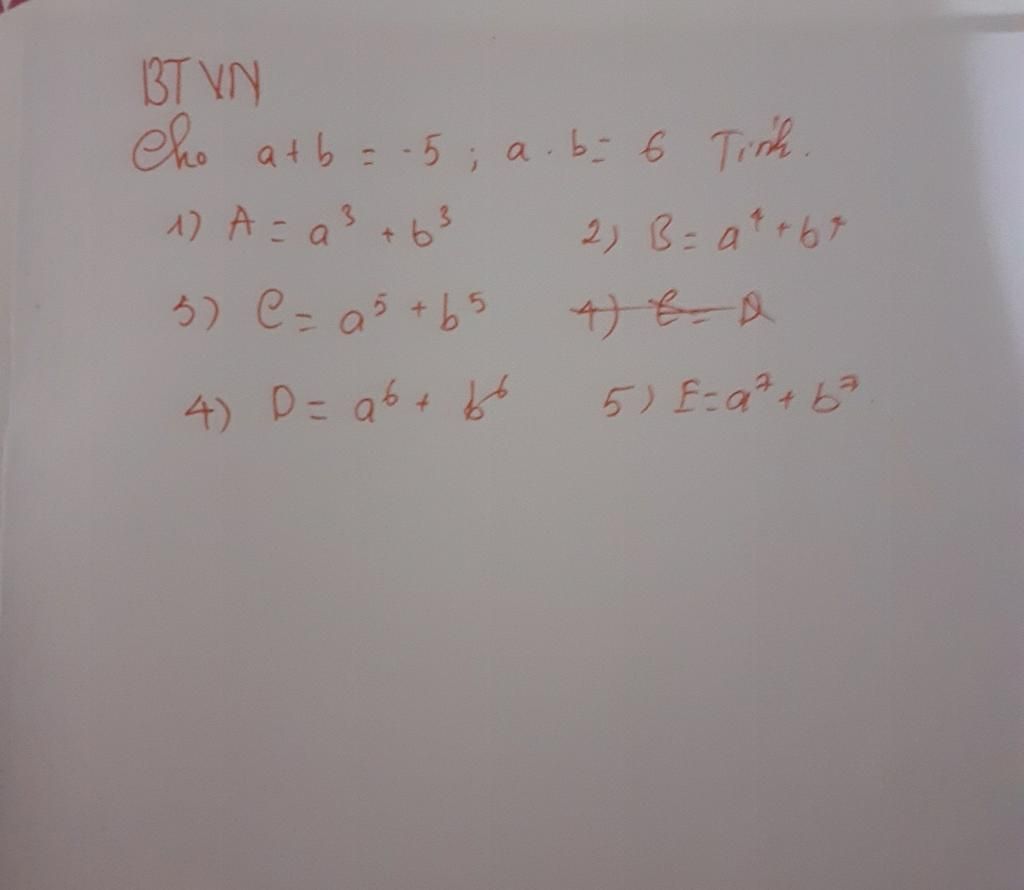 BTVN
Cho a + b = -5 ; a . b = 6 Tính.
1) A = a³ + b³ 2) B = a⁴ + b⁴
3) C = a⁵ + b⁵ 4) C = D
4) D = a⁶ + b⁶ 5) E = a⁷ + b⁷